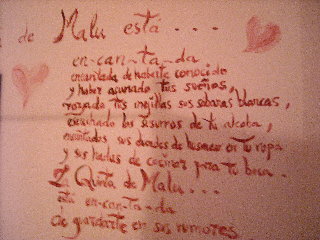 de Malu está...
en-can-ta-da.
encantada de haberte conocido
y haber acunado tus sueños,
rozado tus mejillas sus sabanas blancas,
escuchado los susurros de tu alcoba,
sus duendes de en tu ropa
y sus hadas de cocinar para tu boca.
Quinta de Malu...
está en-can-ta-da
de guardarte en sus rumores